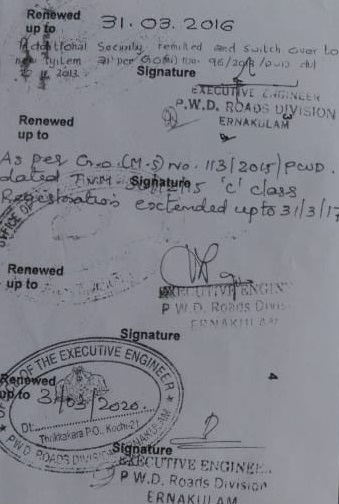 Renewed
up to 31.03.2016
Additional Security remitted and switch over to
new system as per GO(MS) No. 96/2013/PWD dtd
2013.
Signature
EXECUTIVE ENGINEER
P.W.D. ROADS DIVISION
ERNAKULAM
Renewed
up to
As per G.O (M.S) No. 113/2015/PWD.
dated TVM. 2015 'C' class
Signature
Registration extended upto 31/3/17
OFFICE OF
Renewed
up to
EXECUTIVE ENGIN
P W.D. Roads Divis
ERNAKULAM
Signature
OF THE EXECUTIVE ENGINEER
Renewed
up to 31/03/2020
Dt:
Thrikkakara P.O., Kochi-21
P.W.D. ROADS DIVISION ERNAKULAM
Signature
EXECUTIVE ENGINEE
P W.D. Roads Division
ERNAKULAM